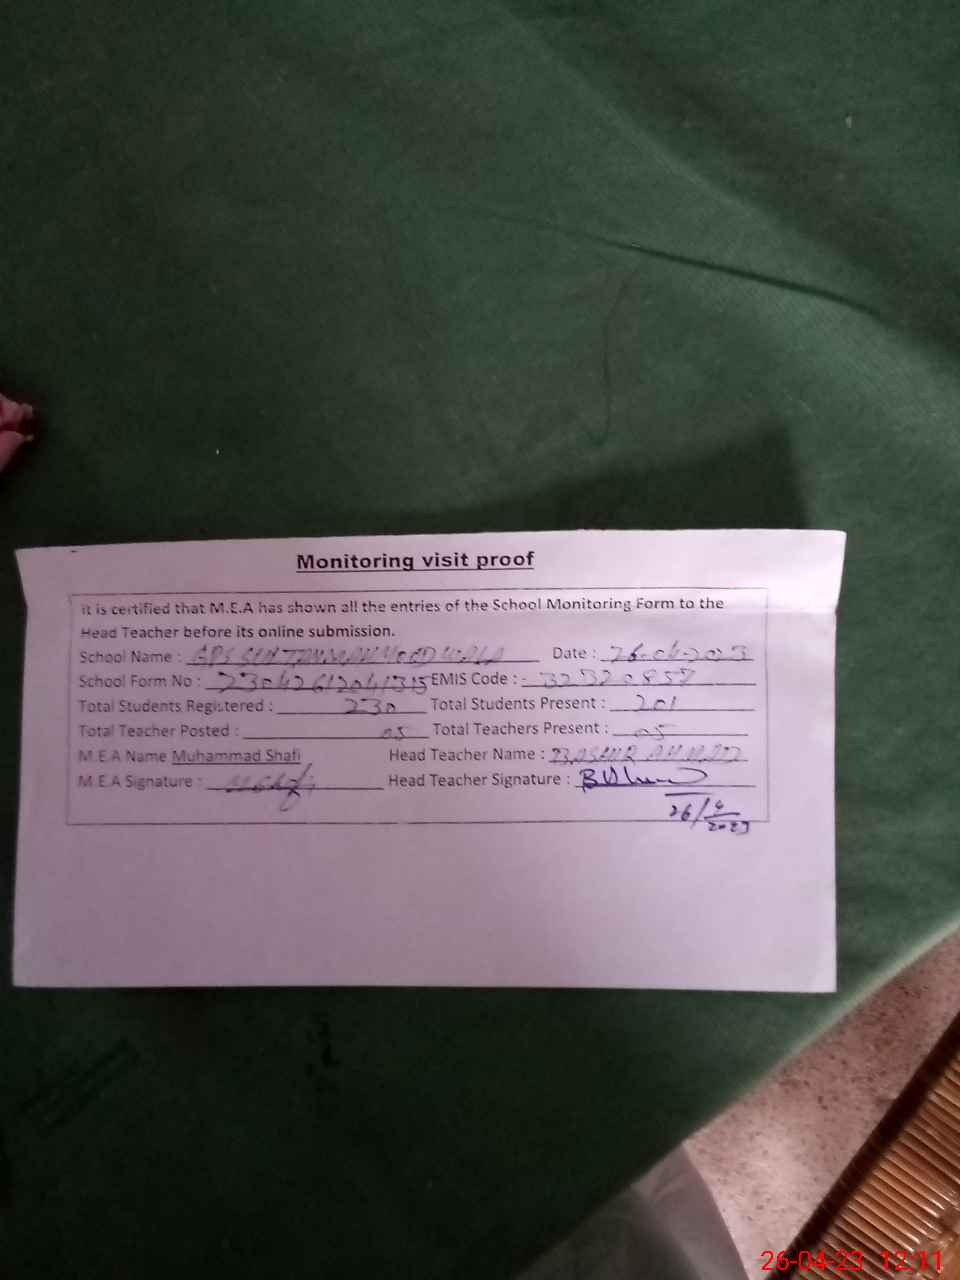 Monitoring visit proof
it is certified that M.E.A has shown all the entries of the School Monitoring Form to the
Head Teacher before its online submission.
School Name : GPS Date : 26-04-2023
School Form No : 23042612041315 EMIS Code : - 32320857
Total Students Registered : 230 Total Students Present : 201
Total Teacher Posted : 05 Total Teachers Present : 05
M.E.A Name Muhammad Shafi Head Teacher Name : BASHIR AHMAD
M.E.A Signature : M Shafi Head Teacher Signature :
26/4/2023
26-04-23 12:11